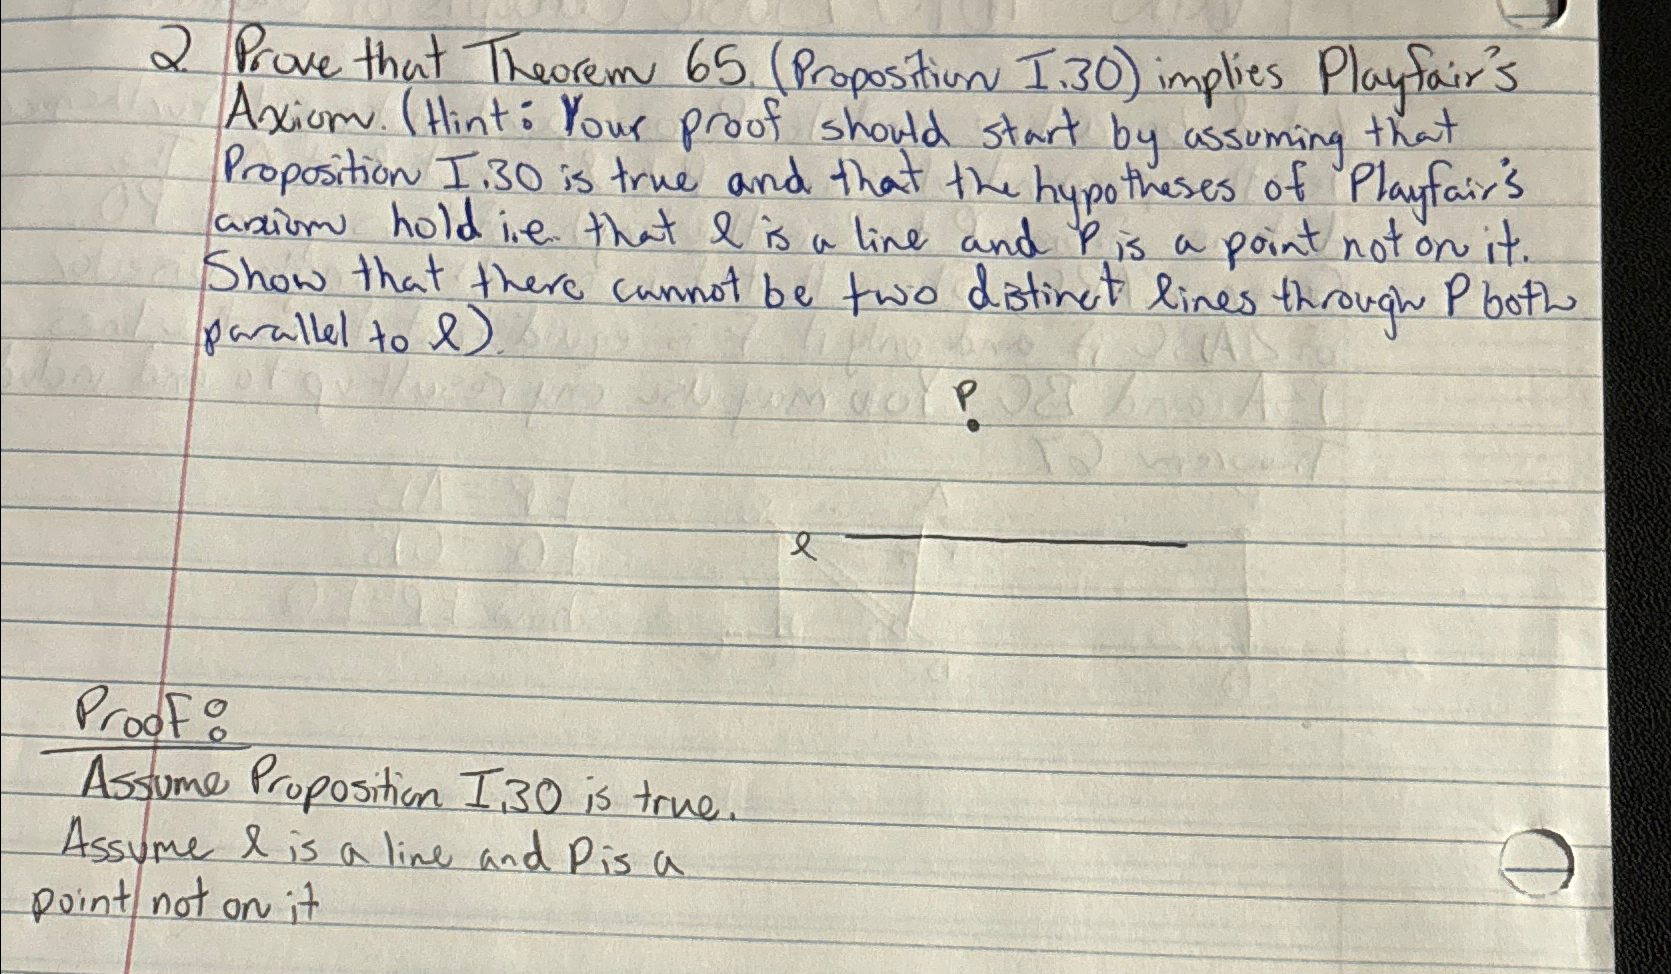 2. Prove that Theorem 65. (Proposition I.30) implies Playfair's
Axiom. (Hint: Your proof should start by assuming that
Proposition I.30 is true and that the hypotheses of Playfair's
axiom hold i.e. that l is a line and P is a point not on it.
Show that there cannot be two distinct lines through P both
parallel to l).
P
l
Proof:
Assume Proposition I.30 is true.
Assume l is a line and P is a
point not on it